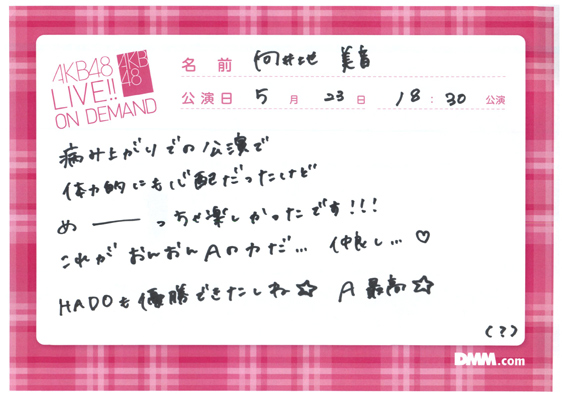 AKB48
LIVE!!
ON DEMAND
AKB
48
名 前 向井地 美音
公演日 5 月 23 日 18:30 公演
病み上がりでの公演で
体力的にも心配だったけど
め――っちゃ楽しかったです!!!
これが おんおんAの力だ… 仲良し…♡
HADOも優勝できたしね☆ A最高☆
(?)
DMM.com